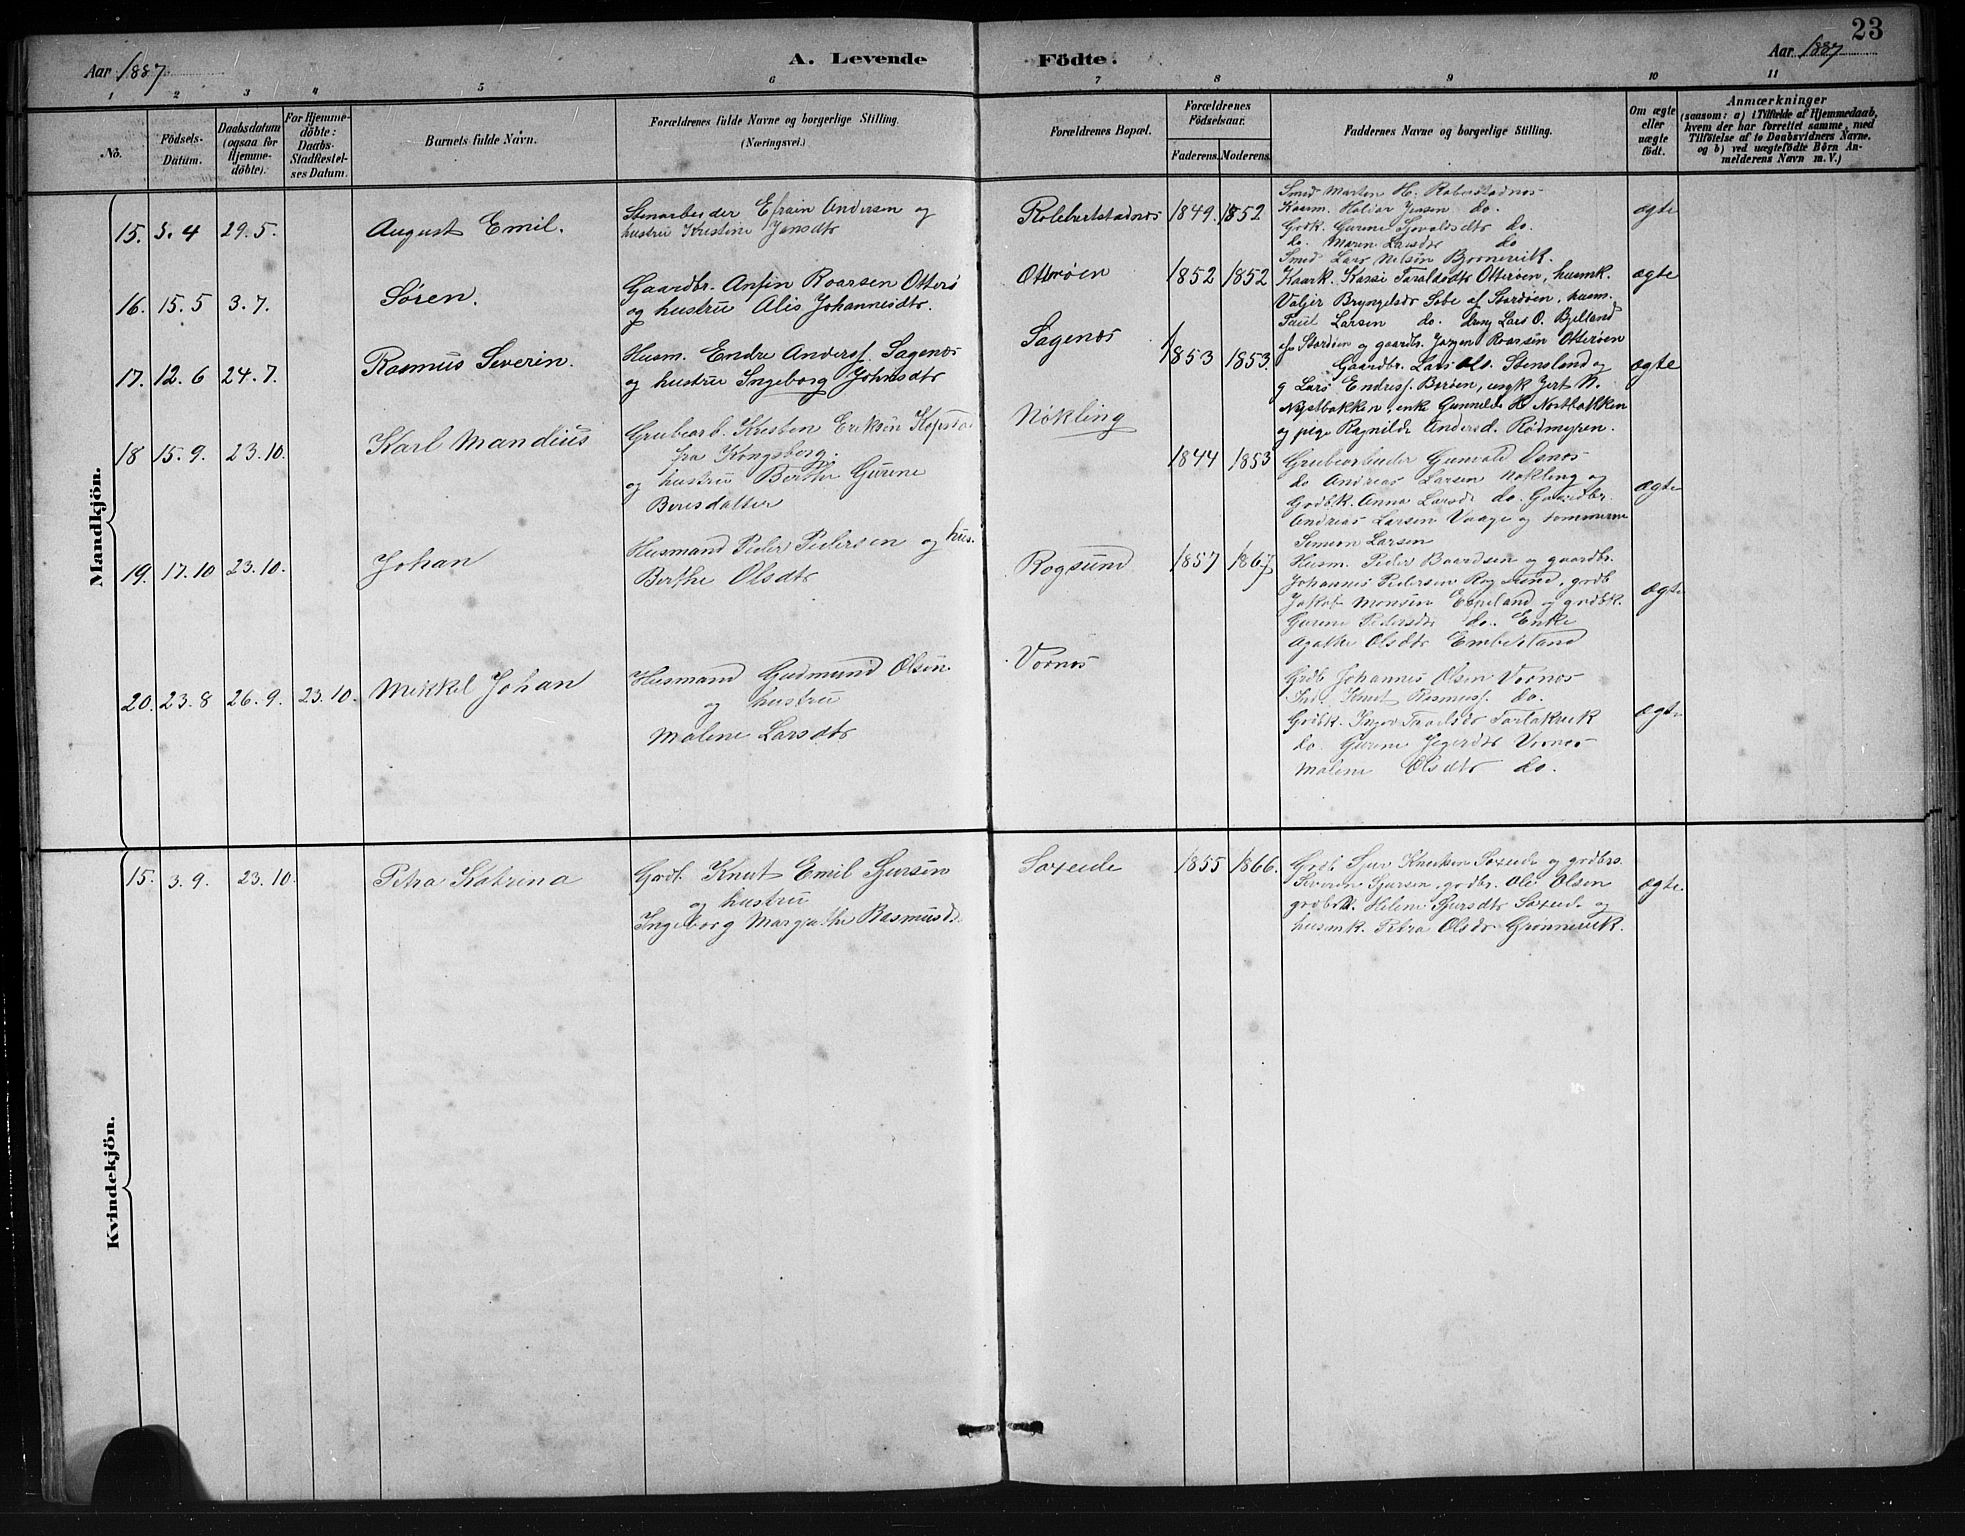 23
Aar 1887.
A. Levende Födte.
Aar 1887
1 2 3 4 5 6 7 8 9 10 11
No.
Födsels-Datum.
Daabsdatum (ogsaa for Hjemme-döbte).
For Hjemme-döbte: Daabs-Stadfæstel-ses Datum.
Barnets fulde Navn.
Forældrenes fulde Navne og borgerlige Stilling.
(Næringsvei.)
Forældrenes Bopæl.
Forældrenes Födselsaar.
Faderens. Moderens.
Faddernes Navne og borgerlige Stilling.
Om ægte eller uægte födt.
Anmærkninger
(saasom: a) i Tilfælde af Hjemmedaab, hvem der har forrettet samme, med Tilföielse af to Daabsvidners Navne, og b) ved uægtefödte Börn An-melderens Navn m. V.)
Mandkjön.
15. 5.4 29.5. August Emil.
Stenarbeider Efraim Andersen og
hustru Kristine Jensdtr
Rolebertstadnes 1849. 1852
Smed Marten H.
Kaarm. Halvor Jensen do.
Grdk. Gurine do.
do. Maren Larsdtr do
Smed Lars Nelsön
ægte
16. 15.5 3.7. Søren.
Gaardbr. Anfin Roarsen Otterø
og hustru Alis Johannesdtr.
Otterøen 1852 1852
Kaark. Kassi Taraldsdtr Otterøen, husmk.
Valgjer Bryngelsdr Søbe af Stordøen, husm.
Paul Larsen do. dreng Lars O. Bjelland
af Stordøen og gaardbr. Jørgen Roarsön Otterøen
ægte
17. 12.6 24.7. Rasmus Severin.
Husm. Endre Anders. Sagenæs
og hustru Ingeborg Johnsdtr
Sagenæs 1853 1853.
Gaardbr. Lars Ols. Stensland og
g Lars Endres. Berøen, ungk Jert N.
Nystbakken, enke Gunnilde H. Nortbakken
og pige Ragnilde Andersd. Rødmyren.
ægte
18 15.9. 23.10. Karl Mandius
Grubearb. Kresten Eriksen
fra Kongsberg.
og hustru Berthe Gurine
Beresdatter
Nökling
1844 1853
Grubearbeider Gunvald
do Andreas Larsen Nökling og
Grdbk. Anna Larsd. do. Gaardbr.
Andreas Larsen Vaage og
Simeon Larsen
ægte
19. 17.10 23.10. Johan
Husmand Peder Pedersen og hus.
Berthe Olsdtr
Rogsund 1857 1867
Husm. Peder Baardsen og gaardbr.
Johannes Pedersen Rogsund, grdb
Jakob Monsen Epeland og grdbk.
Gurine Pedersdtr do. Enke
Agathe Olsdtr Emberland
ægte
20. 23.8 26.9. 23.10. Mikkel Johan
Husmand Gudmund Olsen
og hustru
Malene Larsdtr
Vornes
Grdb Johannes Olsen Vornes
Knut Rasmuss. do.
Grdbk.
do. Gurine Vornes
Malene Olsdtr do.
ægte
Kvindekjön.
15. 3.9. 23.10. Petra Katrina
Grdb. Knut Emil Sjursön
og hustru
Ingeborg Margrathe Rasmusd.
Saxeide 1855 1866.
Grdb Sjur Knutsen Saxeide og grdbrs.
Severin Sjursen, grdbr. Ole Olsen
grdbk. Helene Sjursdtr Saxeide og
husmk. Petra Olsdr Grönnevik.
ægte